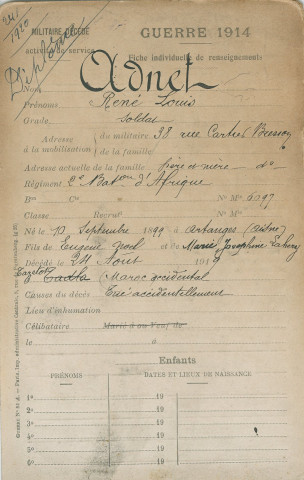 241
1920
Diplôme
MILITAIRE DÉCÉDÉ
en activité de service
GUERRE 1914
Fiche individuelle de renseignements
Adnet
Nom
Prénoms René Louis
Grade Soldat
Adresse à la mobilisation du militaire: 38 rue Cartier Bresson
de la famille:
Adresse actuelle de la famille père et mère do
Régiment 2e Bat on d'Afrique
Bon Cie No Mle 6097
Classe Recrut No
Né le 13 Septembre 1899 à (Aisne)
Fils de Eugène Noël et de Marie Joséphine
Décédé le 24 Août 1919
à Tadla (Maroc occidental
Causes du décès Tué accidentellement
Lieu d'inhumation
Célibataire Marié à ou Veuf de
le à
Enfants
PRÉNOMS DATES ET LIEUX DE NAISSANCE
1o 19
2o 19
3o 19
4o 19
5o 19
6o 19